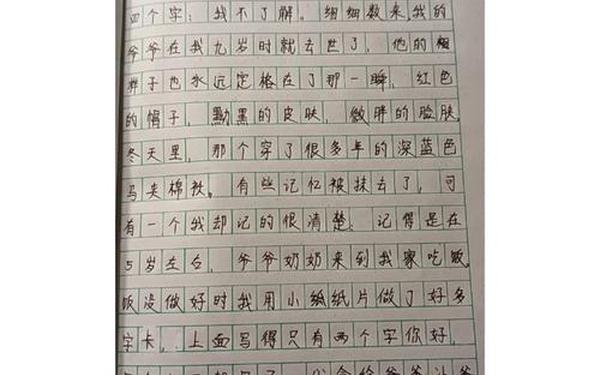 四个字：我不了解。细细数来,我的
爷爷在我九岁时就去世了，他的
样子也永远定格在了那一瞬，红色
的帽子，黝黑的皮肤，微胖的脸肤,
冬天里，那个穿了很多年的深蓝色
马夹棉袄。有些记忆被抹去了，可
有一个我却记的很清楚：记得是在
5岁左右，爷爷奶奶来到我家吃饭,
饭没做好时我用小纸片做了好多
字卡，上面写得只有两个字你好,